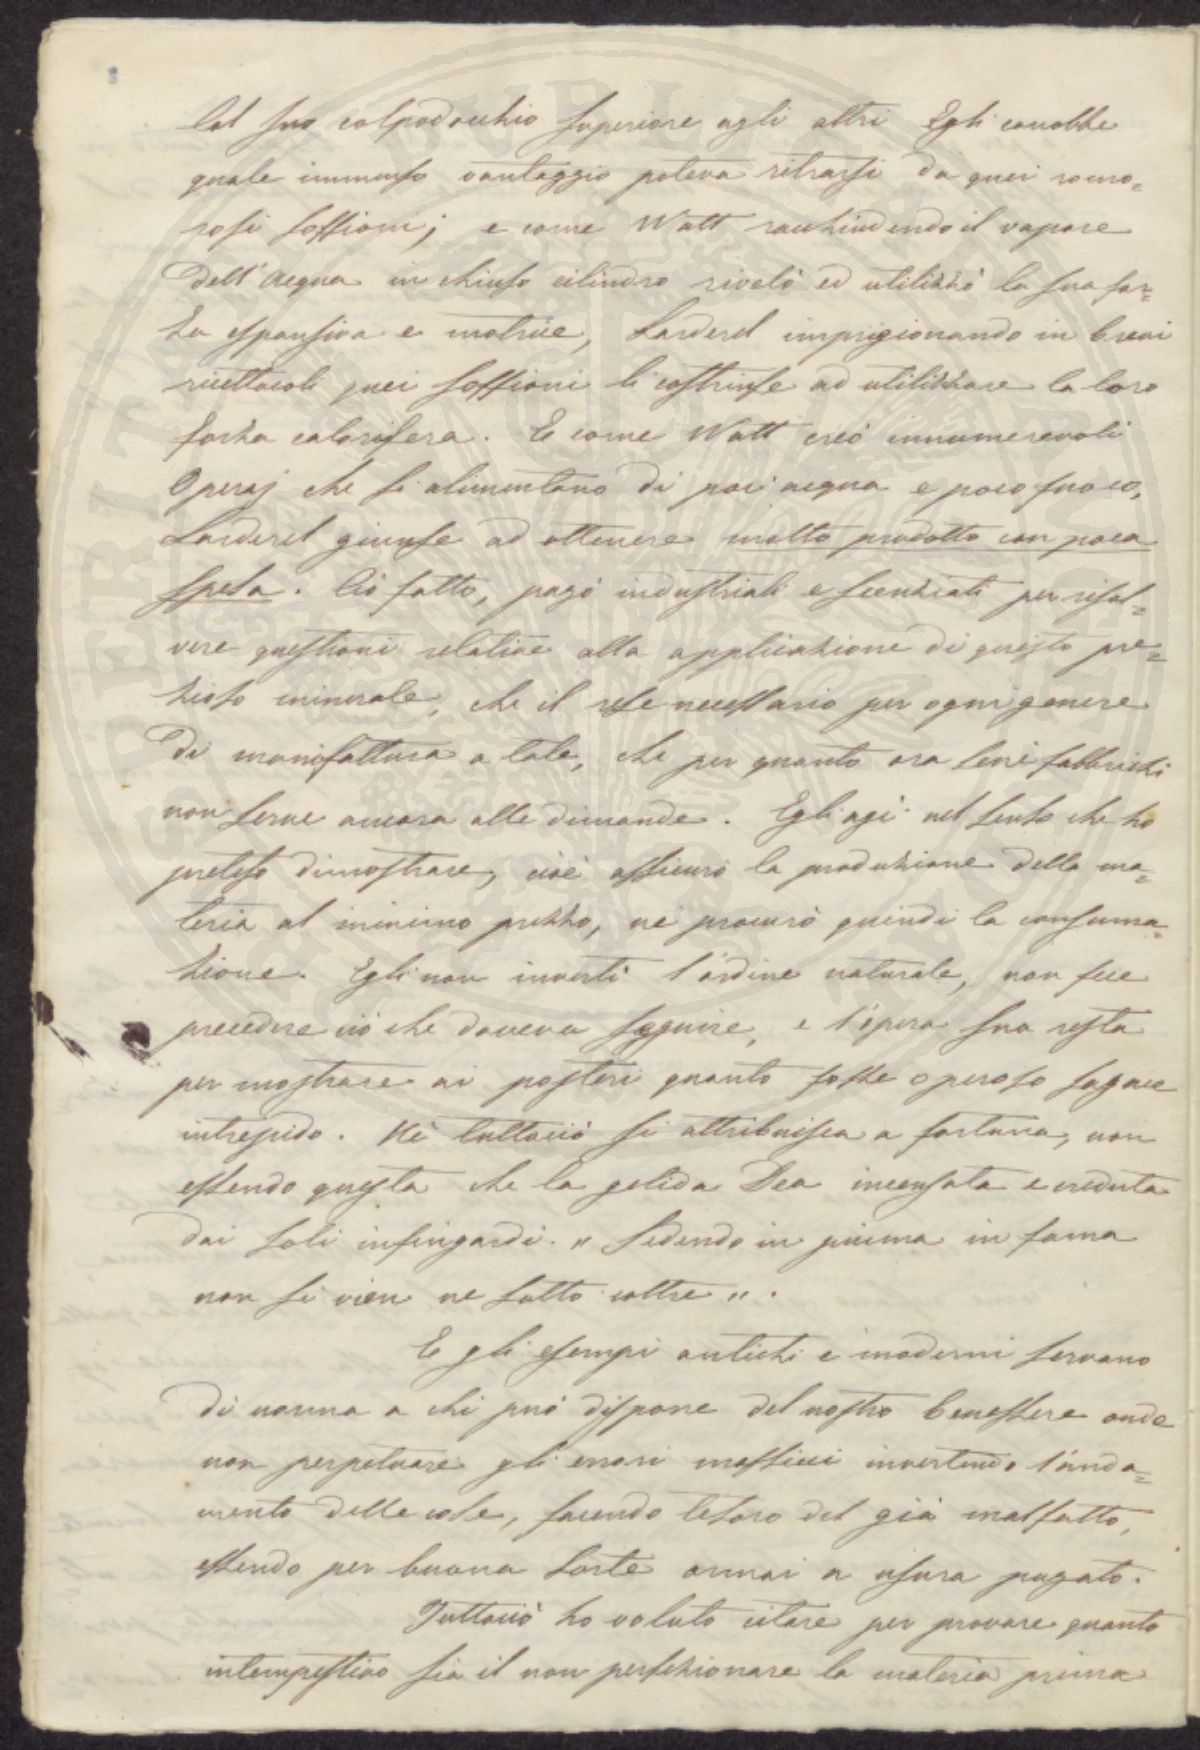 Col suo colpo d'occhio superiore agli altri Egli conobbe
quale immenso vantaggio poteva ritrarsi da quei romo=
rosi soffioni; e come Watt racchiudendo il vapore
dell'acqua in chiuso cilindro rivelò ed utilizzò la sua for=
za espansiva e motrice, Larderel imprigionando in brevi
ricettacoli quei soffioni li costrinse ad utilizzare la loro
forza calorifera. E come Watt creò innumerevoli
Operaj che si alimentano di poc'acqua e poco fuoco,
Larderel giunse ad ottenere molto prodotto con poca
spesa. Ciò fatto, pagò industriali e scenziati per risol=
vere questioni relative alla applicazione di questo pre=
zioso minerale, che il rese necessario per ogni genere
di manifattura a tale, che per quanto ora sene fabbrichi
non serve ancora alle dimande. Egli agì nel senso che ho
preteso dimostrare, cioè assicurò la produzione della ma=
teria al minimo prezzo, ne procurò quindi la consuma=
zione. Egli non invertì l'ordine naturale, non fece
precedere ciò che doveva seguire, e l'opera sua resta
per mostrare ai posteri quanto fosse operoso sagace
intrepido. Nè tuttociò si attribuisca a fortuna, non
essendo questa che la gelida Dea incensata e creduta
dai soli infingardi. " Sedendo in piuma in fama
non si vien ne sotto coltre ".
E gli esempi antichi e moderni servano
di norma a chi può disporre del nostro benessere onde
non perpetuare gli errori massicci invertendo l'anda=
mento delle cose, facendo tesoro del già malfatto,
essendo per buona sorte ormai a usura pagato.
Tuttociò ho voluto citare per provare quanto
intempestivo sia il non perfezionare la materia prima